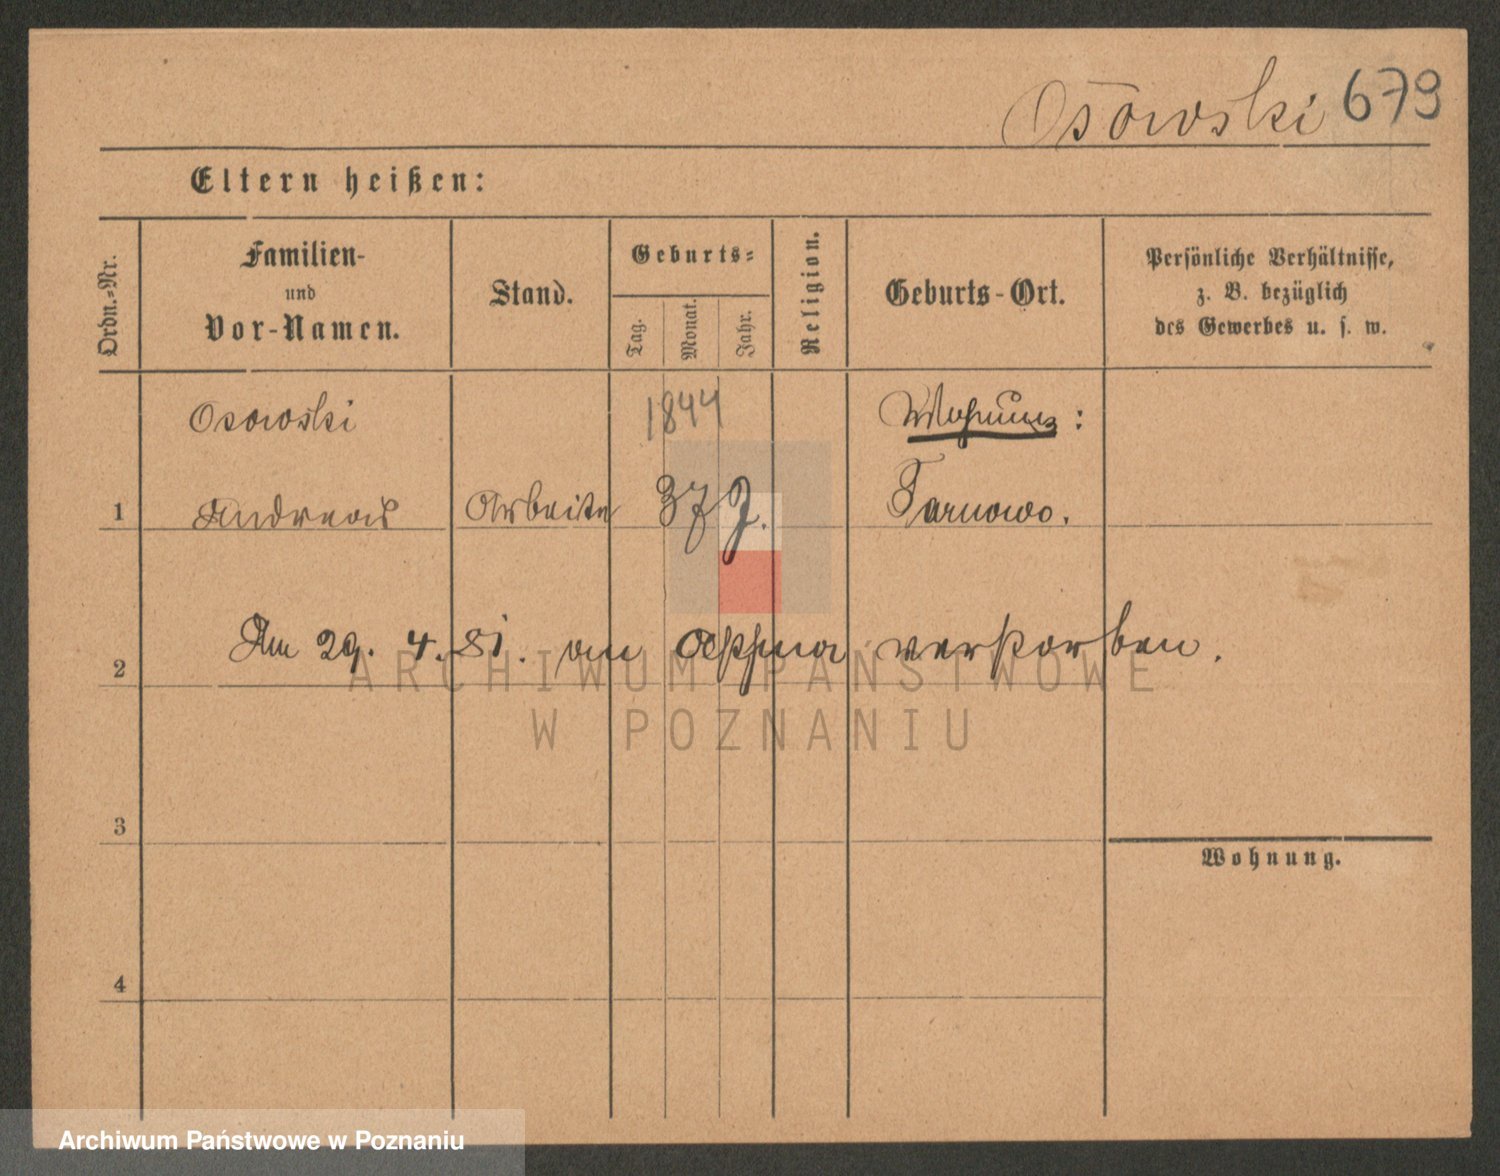 Osowski 679
Eltern heißen:
Ordn.-Nr.
Familien-
und
Vor-Namen.
Stand.
Geburts-
Tag.
Monat.
Jahr.
Religion.
Geburts-Ort.
Persönliche Verhältnisse,
z. B. bezüglich
des Gewerbes u. s. w.
Osowski 1844 Wohnung:
1 Andreas Arbeiter 37 J. Tarnowo.
2 Am 29. 4. 81. an Asthma verstorben.
3
Wohnung.
4
ARCHIWUM PAŃSTWOWE
W POZNANIU
Archiwum Państwowe w Poznaniu